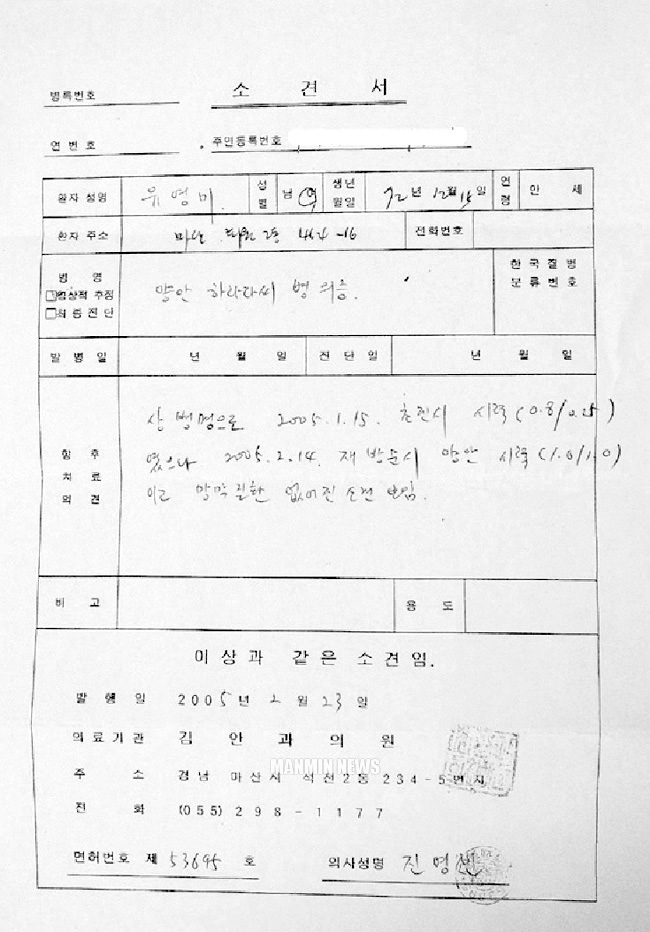 병록번호
소 견 서
연 번 호
주민등록번호
환자 성명 유영미 성별 남 여 생년월일 72년 12월 일 연령 만 세
환자 주소 마산 2동 -16 전화번호
병 명 한국질병
□임상적 추정 분류번호
□최종진단 양안 하라다씨 병 의증.
발 병 일 년 월 일 진 단 일 년 월 일
향 후 치 료 의 견
상 병명으로 2005.1.15. 초진시 시력(0.8/0.25)
였으나 2005.2.14. 재 방문시 양안 시력(1.0/1.0)
이고 망막질환 없어진 소견 보임.
비 고 용 도
이상과 같은 소견임.
발 행 일 2005년 2월 23일
의료기관 김 안 과 의 원
MANMIN NEWS
주 소 경남 마산시 석전2동 234-5번지
전 화 (055) 298-1177
면허번호 제 53695 호 의사성명 진영